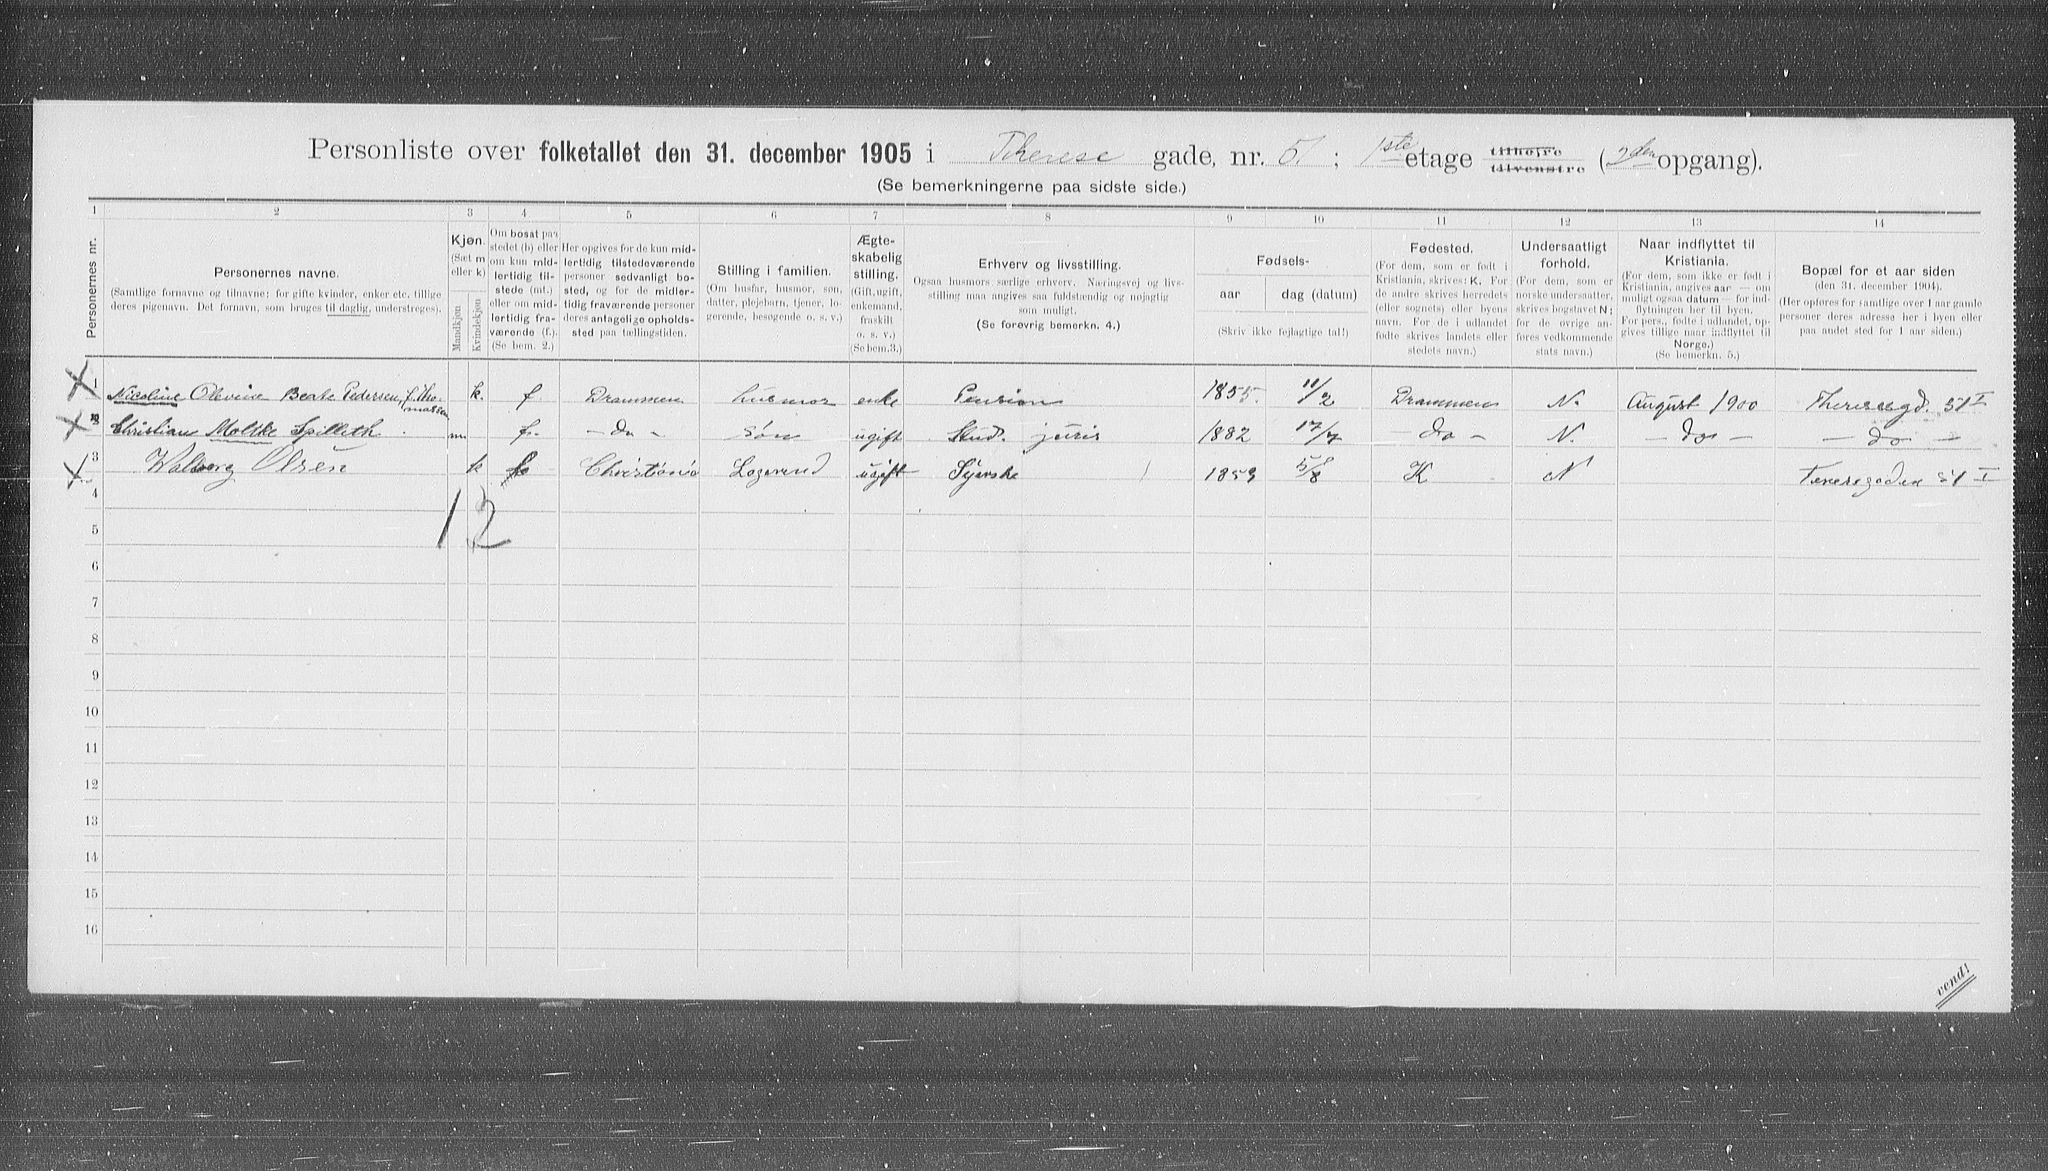 Personliste over folketallet den 31. december 1905 i Therese gade, nr. 51; 1ste etage tilhøjre tilvenstre (2den opgang).
(Se bemerkningerne paa sidste side.)
1 2 3 4 5 6 7 8 9 10 11 12 13 14
Personernes nr.
Personernes navne.
(Samtlige fornavne og tilnavne; for gifte kvinder, enker etc. tillige
deres pigenavn. Det fornavn, som bruges til daglig, understreges).
Kjøn.
(Sæt m
eller k)
Mandkjøn
Kvindekjøn
Om bosat paa
stedet (b) eller
om kun mid-
lertidig til-
stede (mt.)
eller om mid-
lertidig fra-
værende (f.).
(Se bem. 2.)
Her opgives for de kun mid-
lertidig tilstedeværende
personer sedvanligt bo-
sted, og for de midler-
tidig fraværende personer
deres antagelige opholds-
sted paa tællingstiden.
Stilling i familien.
(Om husfar, husmor, søn,
datter, plejebarn, tjener, lo-
gerende, besøgende o. s. v.)
Ægte-
skabelig
stilling.
(Gift, ugift,
enkemand,
fraskilt
o. s. v.)
(Se bem.3.)
Erhverv og livsstilling.
Ogsaa husmors særlige erhverv. Næringsvej og livs-
stilling maa angives saa fuldstændig og nøjagtig
som muligt.
(Se forøvrig bemerkn. 4.)
Fødsels-
aar dag (datum)
(Skriv ikke fejlagtige tal!)
Fødested.
(For dem, som er født i
Kristiania, skrives: K. For
de andre skrives herredets
(eller sognets) eller byens
navn. For de i udlandet
fødte skrives landets eller
stedets navn.)
Undersaatligt
forhold.
(For dem, som er
norske undersaatter,
skrives bogstavet N;
for de øvrige an-
føres vedkommende
stats navn.)
Naar indflyttet til
Kristiania.
(For dem, som ikke er født i
Kristiania, angives aar — om
muligt ogsaa datum — for ind-
flytningen her til byen.
For pers., fødte i udlandet, op-
gives tillige naar indflyttet til
Norge.)
(Se bemerkn. 5.)
Bopæl for et aar siden
(den 31. december 1904).
(Her opføres for samtlige over 1 aar gamle
personer deres adresse her i byen eller
paa andet sted for 1 aar siden.)
1 Nicoline Olevine Beate Pedersen, f. Tho- k. f Drammen husmor enke Pension 1855. 11/2 Drammen N. August 1900 Theresegd. 51 I
massen
2 Christian Moltke Spilleth. m. f. - do - søn ugift Stud. juris 1882 17/7 - do - N. - do - - do -
3 Walborg Olsen k b Christiania Logerend ugift Syerske 1859 5/8 K N Teresegaden 51 I
4
12
5
6
7
8
9
10
11
12
13
14
15
16
vend!